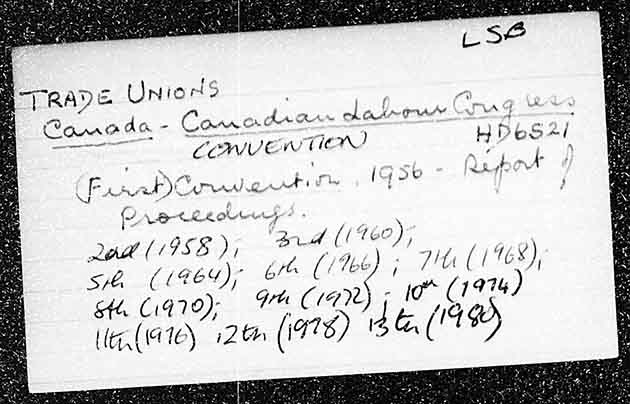 LSB
TRADE UNIONS
Canada - Canadian Labour Congress
CONVENTION HD6521
(First) Convention, 1956 - Report of
Proceedings.
2nd (1958); 3rd (1960);
5th (1964); 6th (1966); 7th (1968);
8th (1970); 9th (1972); 10th (1974)
11th (1976) 12th (1978) 13th (1980)